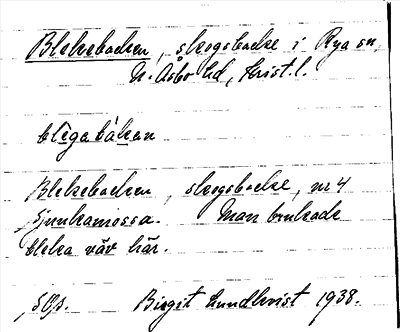 Blekebacken, skogsbacke i Rya sn,
N. Åsbo hd, Krist. l.
blegabakan
Blekebacken, skogsbacke, nr 4
Sjunkamossa. Man brukade
bleka väv här.
Birgit Lundkvist 1938.